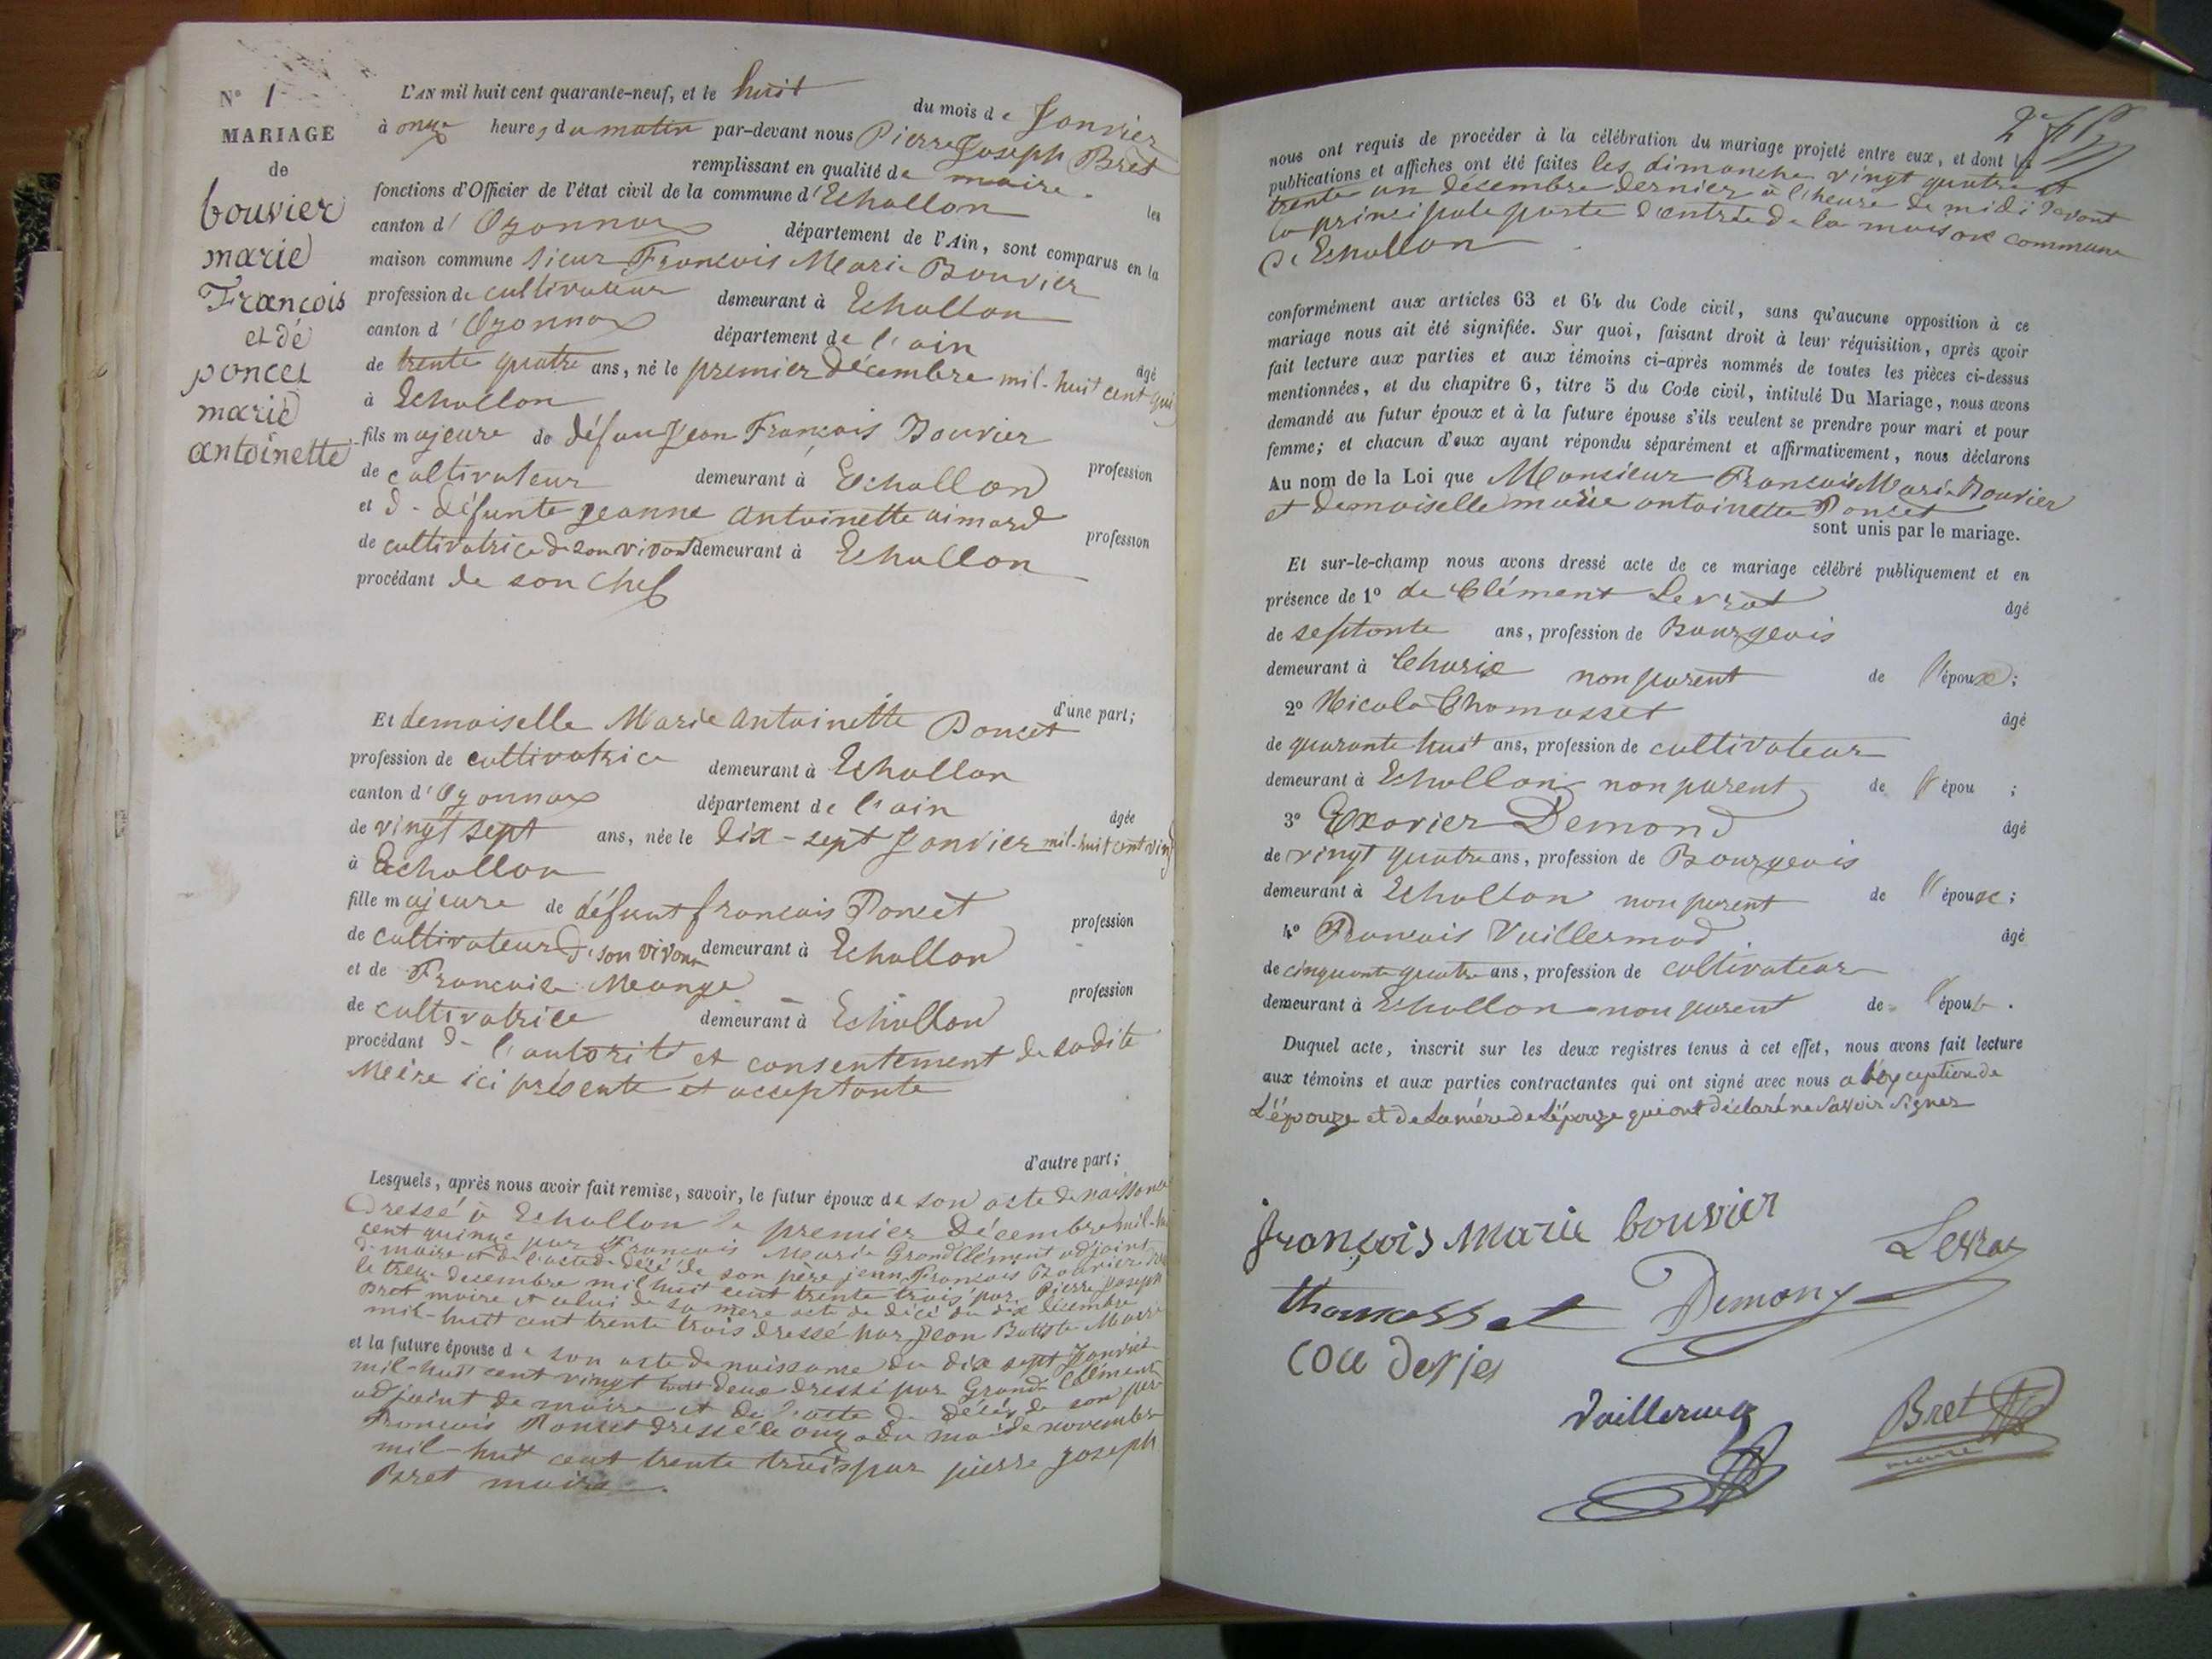 N° 1
MARIAGE
de
bouvier
marie
François
et dé
poncet
marie
antoinette
L'AN mil huit cent quarante-neuf, et le huit du mois de Janvier
à onze heures du matin par-devant nous Pierre Joseph Bret
remplissant en qualité de maire les
fonctions d'Officier de l'état civil de la commune d'Echallon
canton d'Oyonnax département de l'Ain, sont comparus en la
maison commune sieur François Marie Bouvier
profession de cultivateur demeurant à Echallon
canton d'Oyonnax département de l'ain âgé
de trente quatre ans, né le premier décembre mil-huit cent qui
à Echallon
fils majeure de défun Jean François Bouvier profession
de cultivateur demeurant à Echallon
et d- défunte jeanne antoinette aimard profession
de cultivatrice de son vivant demeurant à Echallon
procédant de son chef
d'une part;
Et demoiselle Marie antoinette Poncet
profession de cultivatrice demeurant à Echallon
canton d'Oyonnax département de l'ain âgée
de vingt sept ans, née le dix-sept Janvier mil-huit cent vin
à Echallon
fille majeure de défunt françois Poncet profession
de cultivateur de son vivant demeurant à Echallon
et de Françoise Meange profession
de cultivatrice demeurant à Echallon
procédant d- l'autorité et consentement de sadite
Mère ici présente et acceptante
d'autre part;
Lesquels, après nous avoir fait remise, savoir, le futur époux de son acte de naissance
dressé à Echallon le premier Décembre mil-hu
cent quinze par François Marie Grand Clément adjoint
d- maire et de l'acte de décé de son père jean François Bouvier
le treize decembre mil huit cent trente trois par Pierre joseph
Bret maire et celui de sa mere acte de décé du dix décembre
mil-huit cent trente trois dressé par Jean Batiste
et la future épouse de son acte de naissance du dix sept Janvier
mil-huit cent vingt deux dressé par Grand Clément
adjoint de maire et de l'acte de décés de son père
François Poncet dressé le onze du mois de novembre
mil-huit cent trente trois par pierre joseph
Bret maire.
nous ont requis de procéder à la célébration du mariage projeté entre eux, et dont les
publications et affiches ont été faites les dimanche vingt quatre et
trente un décembre dernier à l'heure de midi devant
la principale porte d'entrée de la maison commune
de Echallon
conformément aux articles 63 et 64 du Code civil, sans qu'aucune opposition à ce
mariage nous ait été signifiée. Sur quoi, faisant droit à leur réquisition, après avoir
fait lecture aux parties et aux témoins ci-après nommés de toutes les pièces ci-dessus
mentionnées, et du chapitre 6, titre 5 du Code civil, intitulé Du Mariage, nous avons
demandé au futur époux et à la future épouse s'ils veulent se prendre pour mari et pour
femme; et chacun d'eux ayant répondu séparément et affirmativement, nous déclarons
Au nom de la Loi que Monsieur François Marie Bouvier
et demoiselle marie antoinette Poncet
sont unis par le mariage.
Et sur-le-champ nous avons dressé acte de ce mariage célébré publiquement et en
présence de 1° de Clément Levrat âgé
de septante ans, profession de Bourgeois
demeurant à Charix non parent de l'époux;
2° Nicola Thomasset âgé
de quarante huit ans, profession de cultivateur
demeurant à Echallon non parent de l'épou ;
3° Exavier Demond âgé
de vingt quatre ans, profession de Bourgeois
demeurant à Echallon non parent de l'époux;
4° François Vuillermod âgé
de cinquante quatre ans, profession de cultivateur
demeurant à Echallon non parent de l'époux.
Duquel acte, inscrit sur les deux registres tenus à cet effet, nous avons fait lecture
aux témoins et aux parties contractantes qui ont signé avec nous a l'exception de
L'épouze et de La mére de L'épouze qui ont déclaré ne Savoir Signer
françois marie bouvier
Levrat
thomasset
Demond
Bret
maire